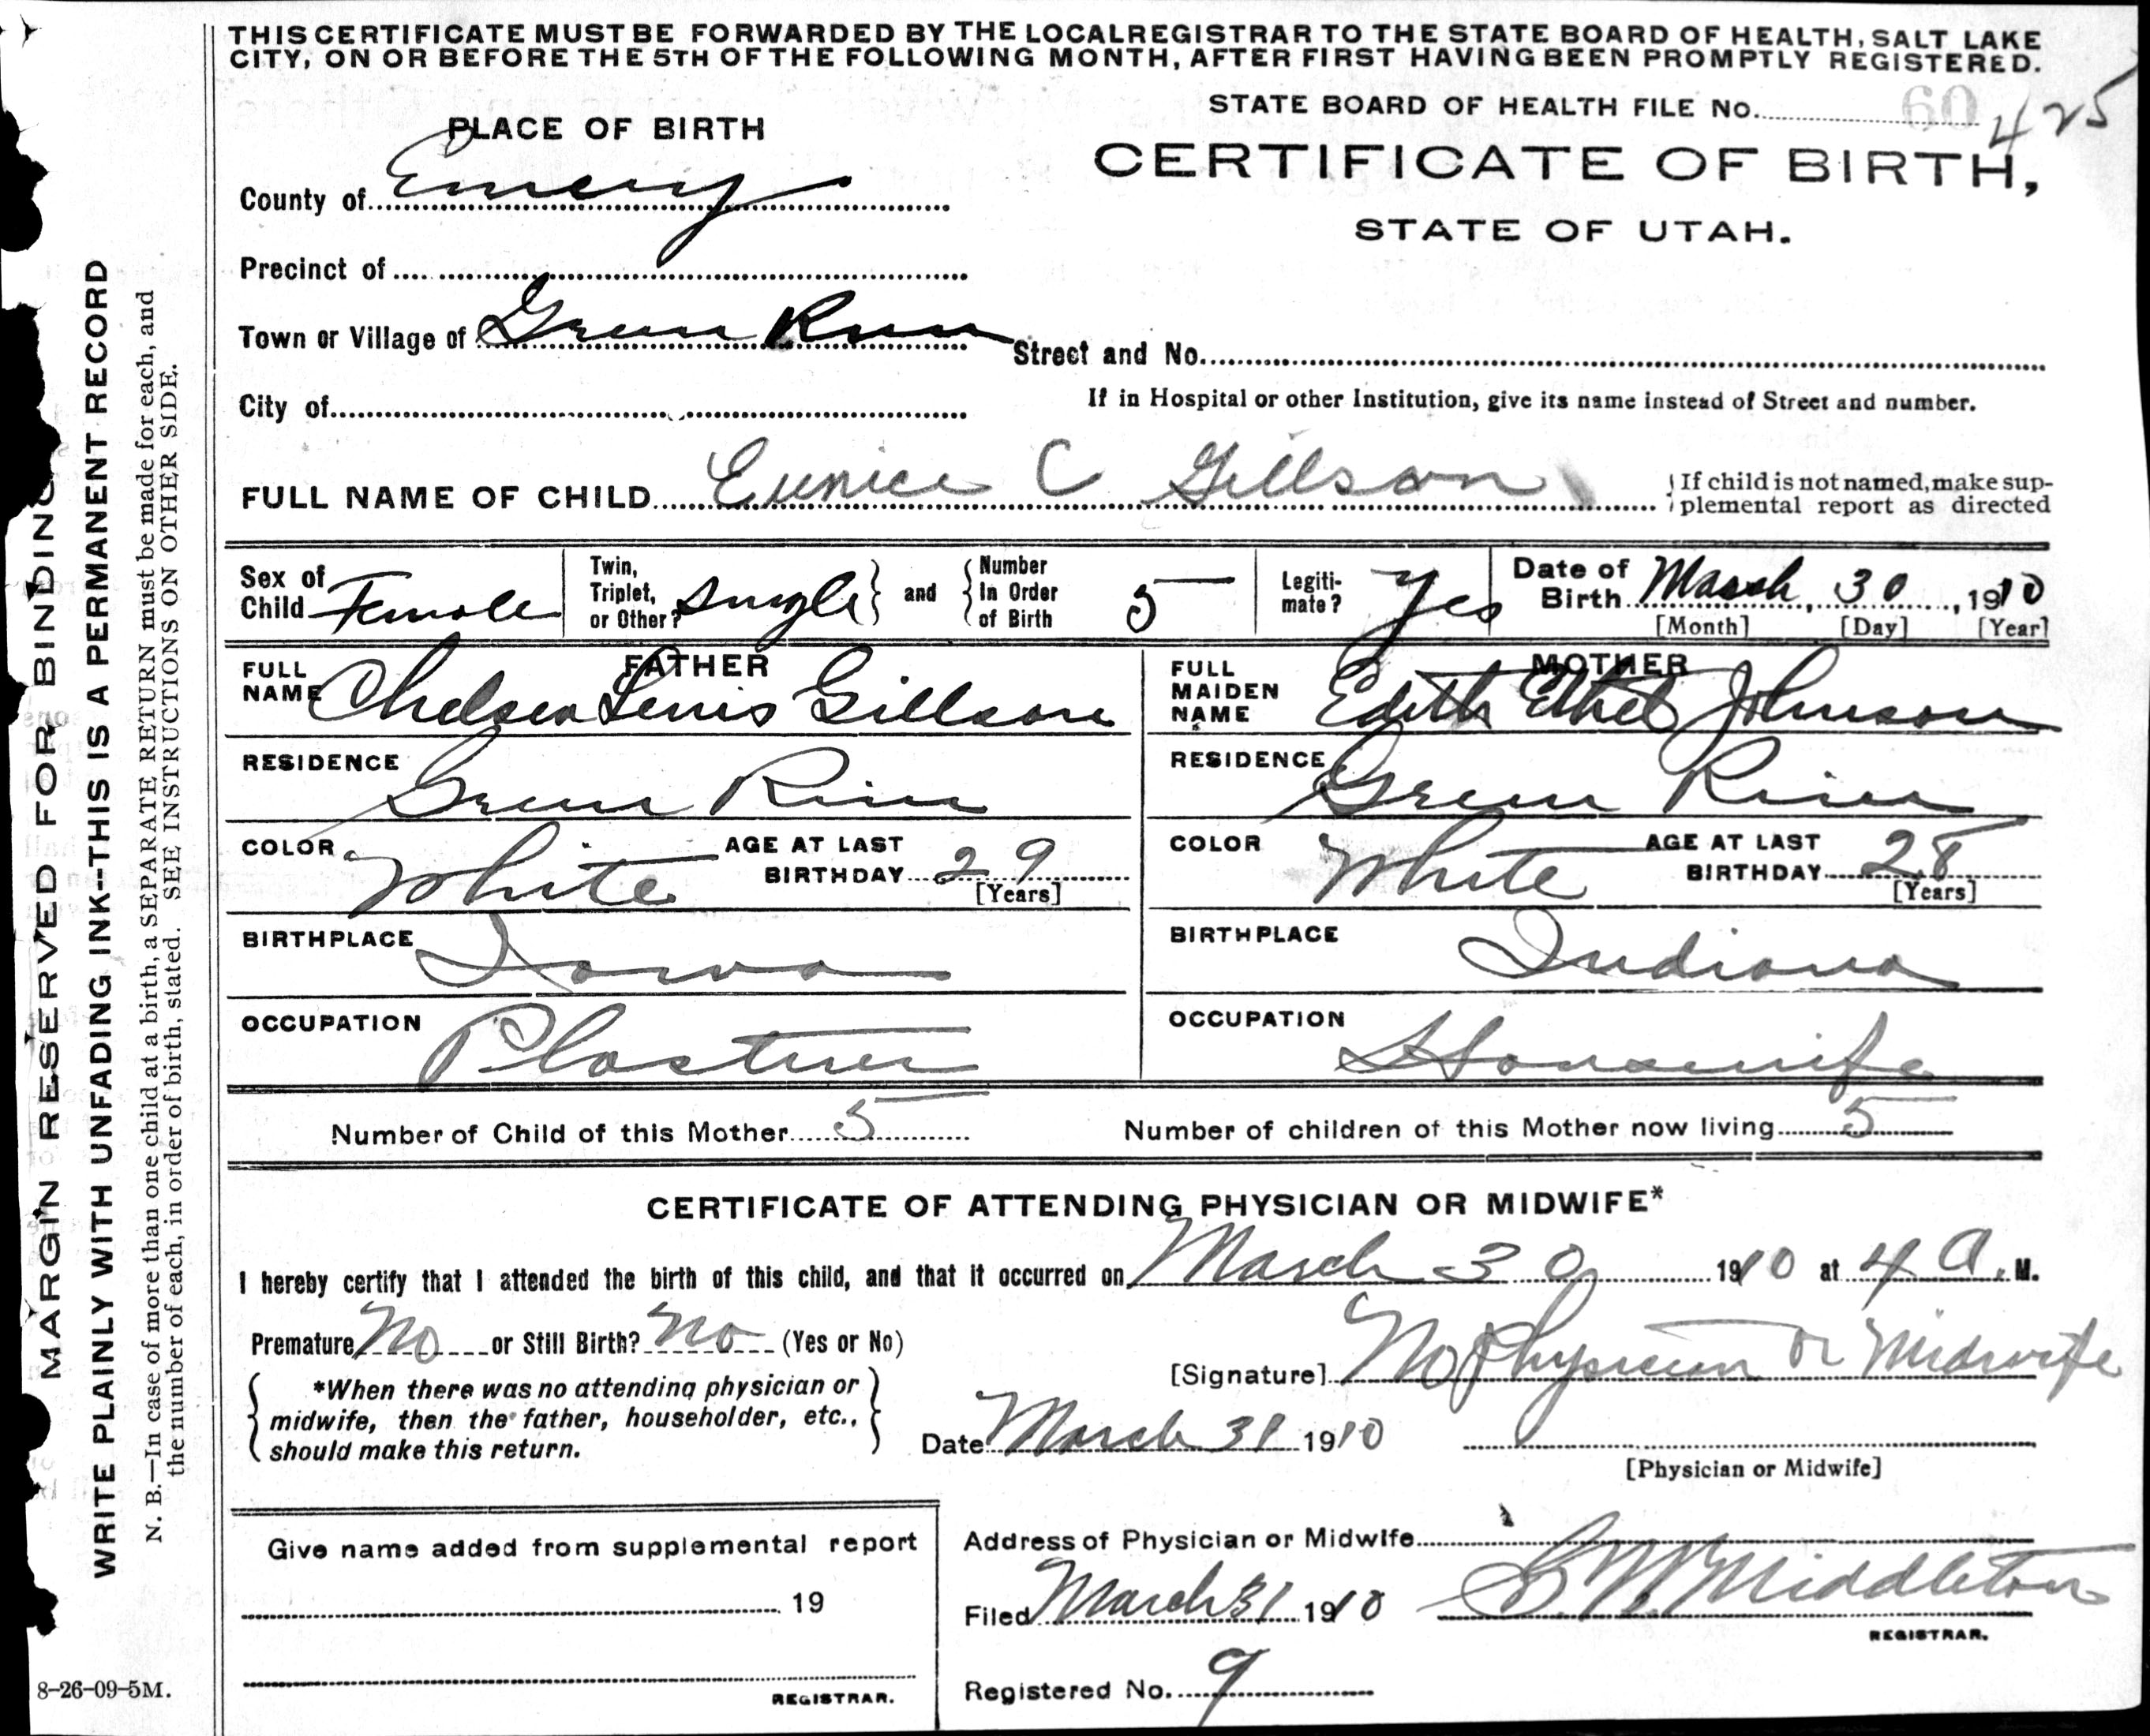 THIS CERTIFICATE MUST BE FORWARDED BY THE LOCAL REGISTRAR TO THE STATE BOARD OF HEALTH, SALT LAKE
CITY, ON OR BEFORE THE 5TH OF THE FOLLOWING MONTH, AFTER FIRST HAVING BEEN PROMPTLY REGISTERED.
STATE BOARD OF HEALTH FILE No. 60 425
PLACE OF BIRTH
CERTIFICATE OF BIRTH,
STATE OF UTAH.
County of Emery
Precinct of
Town or Village of Green River
Street and No.
City of
If in Hospital or other Institution, give its name instead of Street and number.
FULL NAME OF CHILD Eunice C Gillson
If child is not named, make sup-
plemental report as directed
Sex of Child Female
Twin, Triplet, or Other? Single and Number In Order of Birth 5
Legiti-
mate? Yes
Date of Birth March, 30, 1910
[Month] [Day] [Year]
FATHER
FULL NAME Chelsea Lewis Gillson
RESIDENCE Green River
COLOR White AGE AT LAST BIRTHDAY 29
[Years]
BIRTHPLACE Iowa
OCCUPATION Plasterer
MOTHER
FULL MAIDEN NAME Edith Ethel Johnson
RESIDENCE Green River
COLOR White AGE AT LAST BIRTHDAY 28
[Years]
BIRTHPLACE Indiana
OCCUPATION Housewife
Number of Child of this Mother 5 Number of children of this Mother now living 5
CERTIFICATE OF ATTENDING PHYSICIAN OR MIDWIFE*
I hereby certify that I attended the birth of this child, and that it occurred on March 30 1910 at 4 A. M.
Premature No or Still Birth? No (Yes or No)
[Signature] No Physician or Midwife
*When there was no attending physician or
midwife, then the father, householder, etc.,
should make this return.
Date March 31 1910
[Physician or Midwife]
Give name added from supplemental report
19
REGISTRAR.
Address of Physician or Midwife
Filed March 31 1910 S. W. Middleton
REGISTRAR.
Registered No. 9
MARGIN RESERVED FOR BINDING
WRITE PLAINLY WITH UNFADING INK--THIS IS A PERMANENT RECORD
N. B.—In case of more than one child at a birth, a SEPARATE RETURN must be made for each, and
the number of each, in order of birth, stated. SEE INSTRUCTIONS ON OTHER SIDE.
8-26-09-5M.